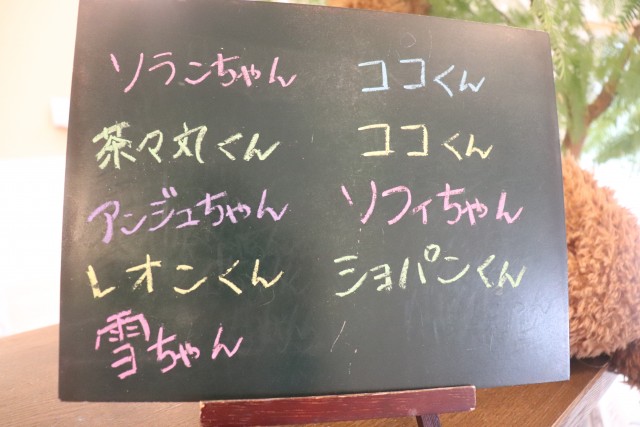 ソランちゃん
茶々丸くん
アンジュちゃん
レオンくん
雪ちゃん
ココくん
ココくん
ソフィちゃん
ショパンくん